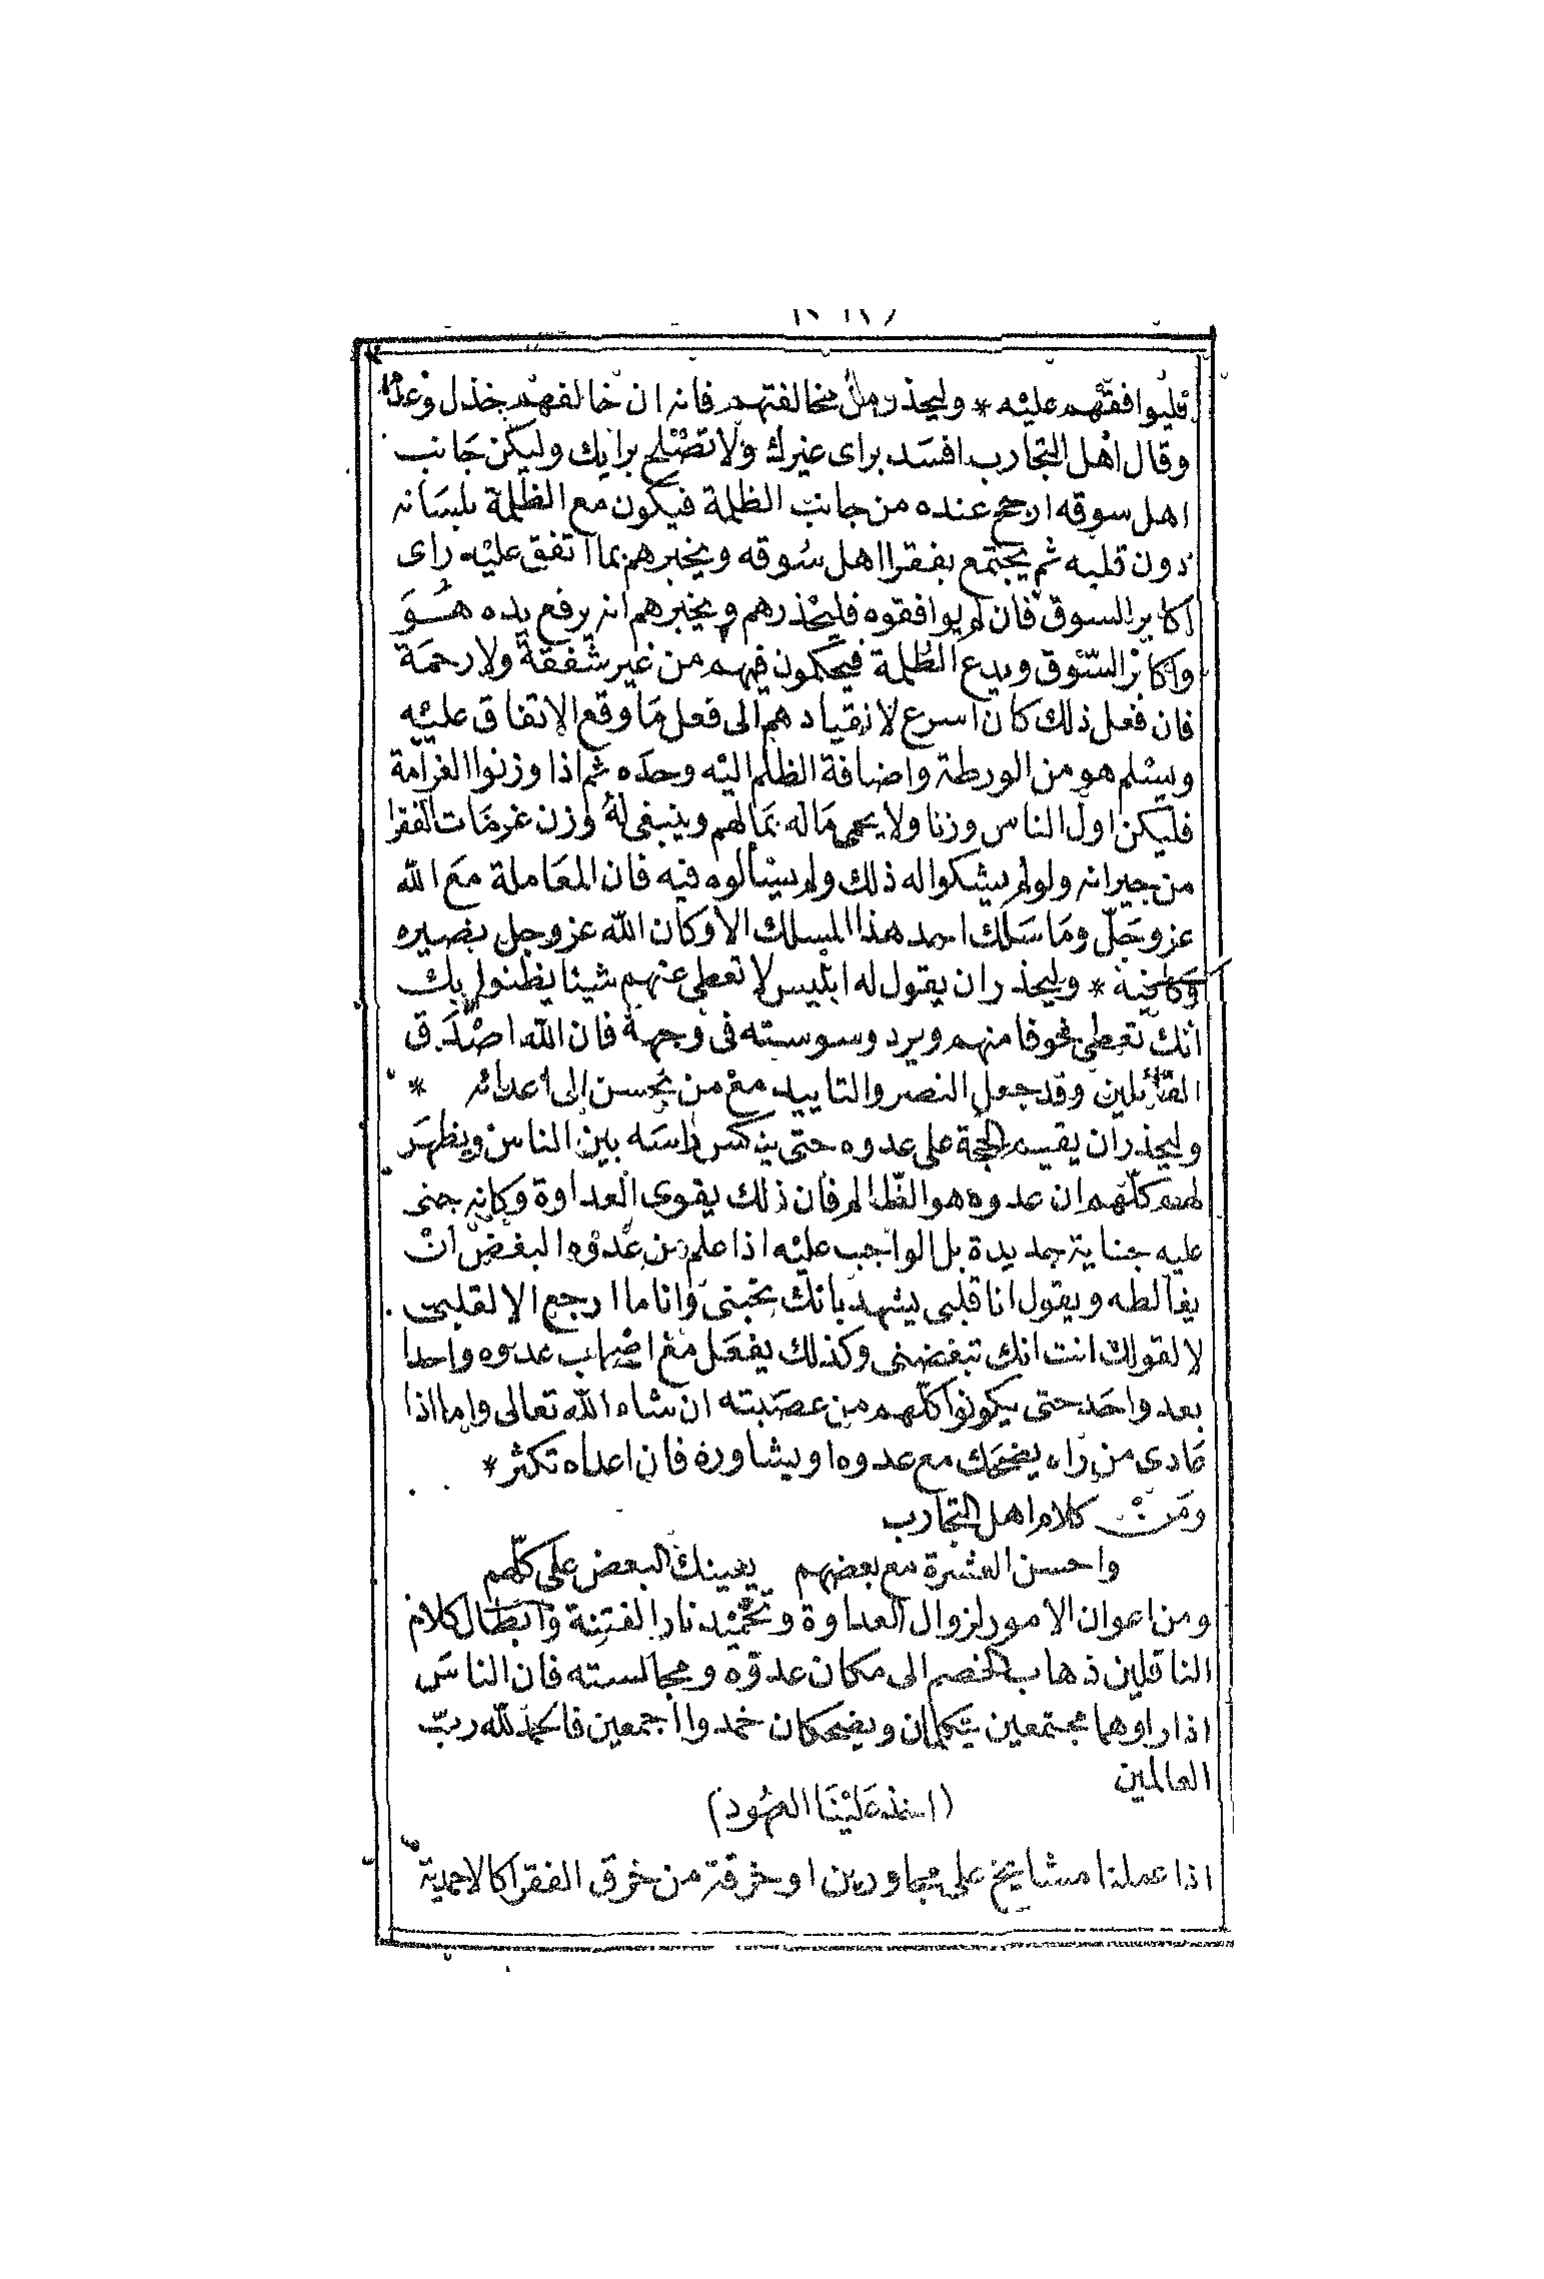 فليوافقهم عليه * وليحذر من مخالفتهم فانه ان خالفهم خذل
وقال اهل التجارب افسد براى غيرك ولا تصلح برايك وليكن جانب
اهل سوقه ارجح عنده من جانب الظلمة فيكون مع الظلمة بلسانه
دون قلبه ثم يجتمع بفقرا اهل سوقه ويخبرهم بما اتفق عليه راى
اكابر السوق فان لم يوافقوه فليحذرهم ويخبرهم انه يرفع يده هو
واكابر السوق ويدع الظلمة فيحكمون فيهم من غير شفقة ولا رحمة
فان فعل ذلك كان اسرع لانقيادهم الى فعل ما وقع الاتفاق عليه
ويسلم هو من الورطة واضافة الظلم اليه وحده ثم اذا وزنوا الغرامة
فليكن اول الناس وزنا ولا يحمى ماله بمالهم وينبغى له وزن غرمات الفقرا
من جيرانه ولو لم يشكوا له ذلك ولم يسالوه فيه فان المعاملة مع الله
عز وجل وما سلك احد هذا المسلك الا وكان الله عز وجل نصيره
* وليحذر ان يقول له ابليس لا تعطى عنهم شيئا يظنوا بك
انك تعطى خوفا منهم ويرد وسوسته فى وجهه فان الله اصدق
القائلين وقد جعل النصر والتاييد مع من يحسن الى اعدائه *
وليحذر ان يقيم الحجة على عدوه حتى ينكس راسه بين الناس ويظهر
لهم كلهم ان عدوه هو الظالم فان ذلك يقوى العداوة وكانه جنى
عليه جناية جديدة بل الواجب عليه اذا علم من عدوه البغض ان
يغالطه ويقول انا قلبى يشهد بانك تحبنى وانا ما ارجع الا لقلبى
لا لقولك انت انك تبغضنى وكذلك يفعل مع اصحاب عدوه واحدا
بعد واحد حتى يكونوا كلهم من عصبته ان شاء الله تعالى واما اذا
عادى من راه يضحك مع عدوه او يشاوره فان اعداه تكثر *
ومن كلام اهل التجارب
واحسن العشرة مع بعضهم يعينك البعض على كلهم
ومن اعوان الامور لزوال العداوة وتخميد نار الفتنة وابطال كلام
الناقلين ذهاب الخصم الى مكان عدوه ومجالسته فان الناس
اذا راوهما مجتمعين يتكلمان ويضحكان خمدوا اجمعين فالحمد لله رب
العالمين
(اخذ علينا العهود)
اذا عملنا مشايخ على مجاورين او خرقة من خرق الفقرا كالاحمدية